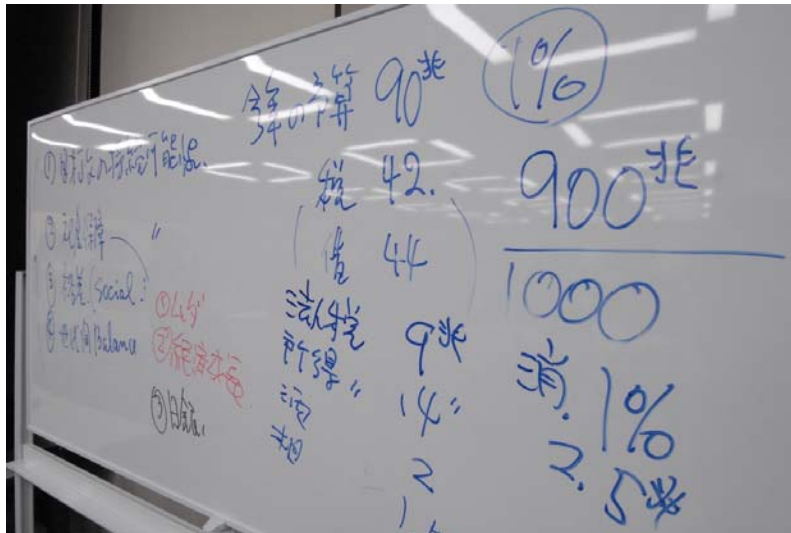 ①財政の持続可能性
② 社会保障 〃
③ 格差(Social
④ 世代間Balance
①ムダ
②経済成長
③日銀
今年の予算 90兆
税 42.
借 44
法人税 9兆
所得〃 14〃
酒 2
1%
900兆
1000
消. 1%
2.5兆